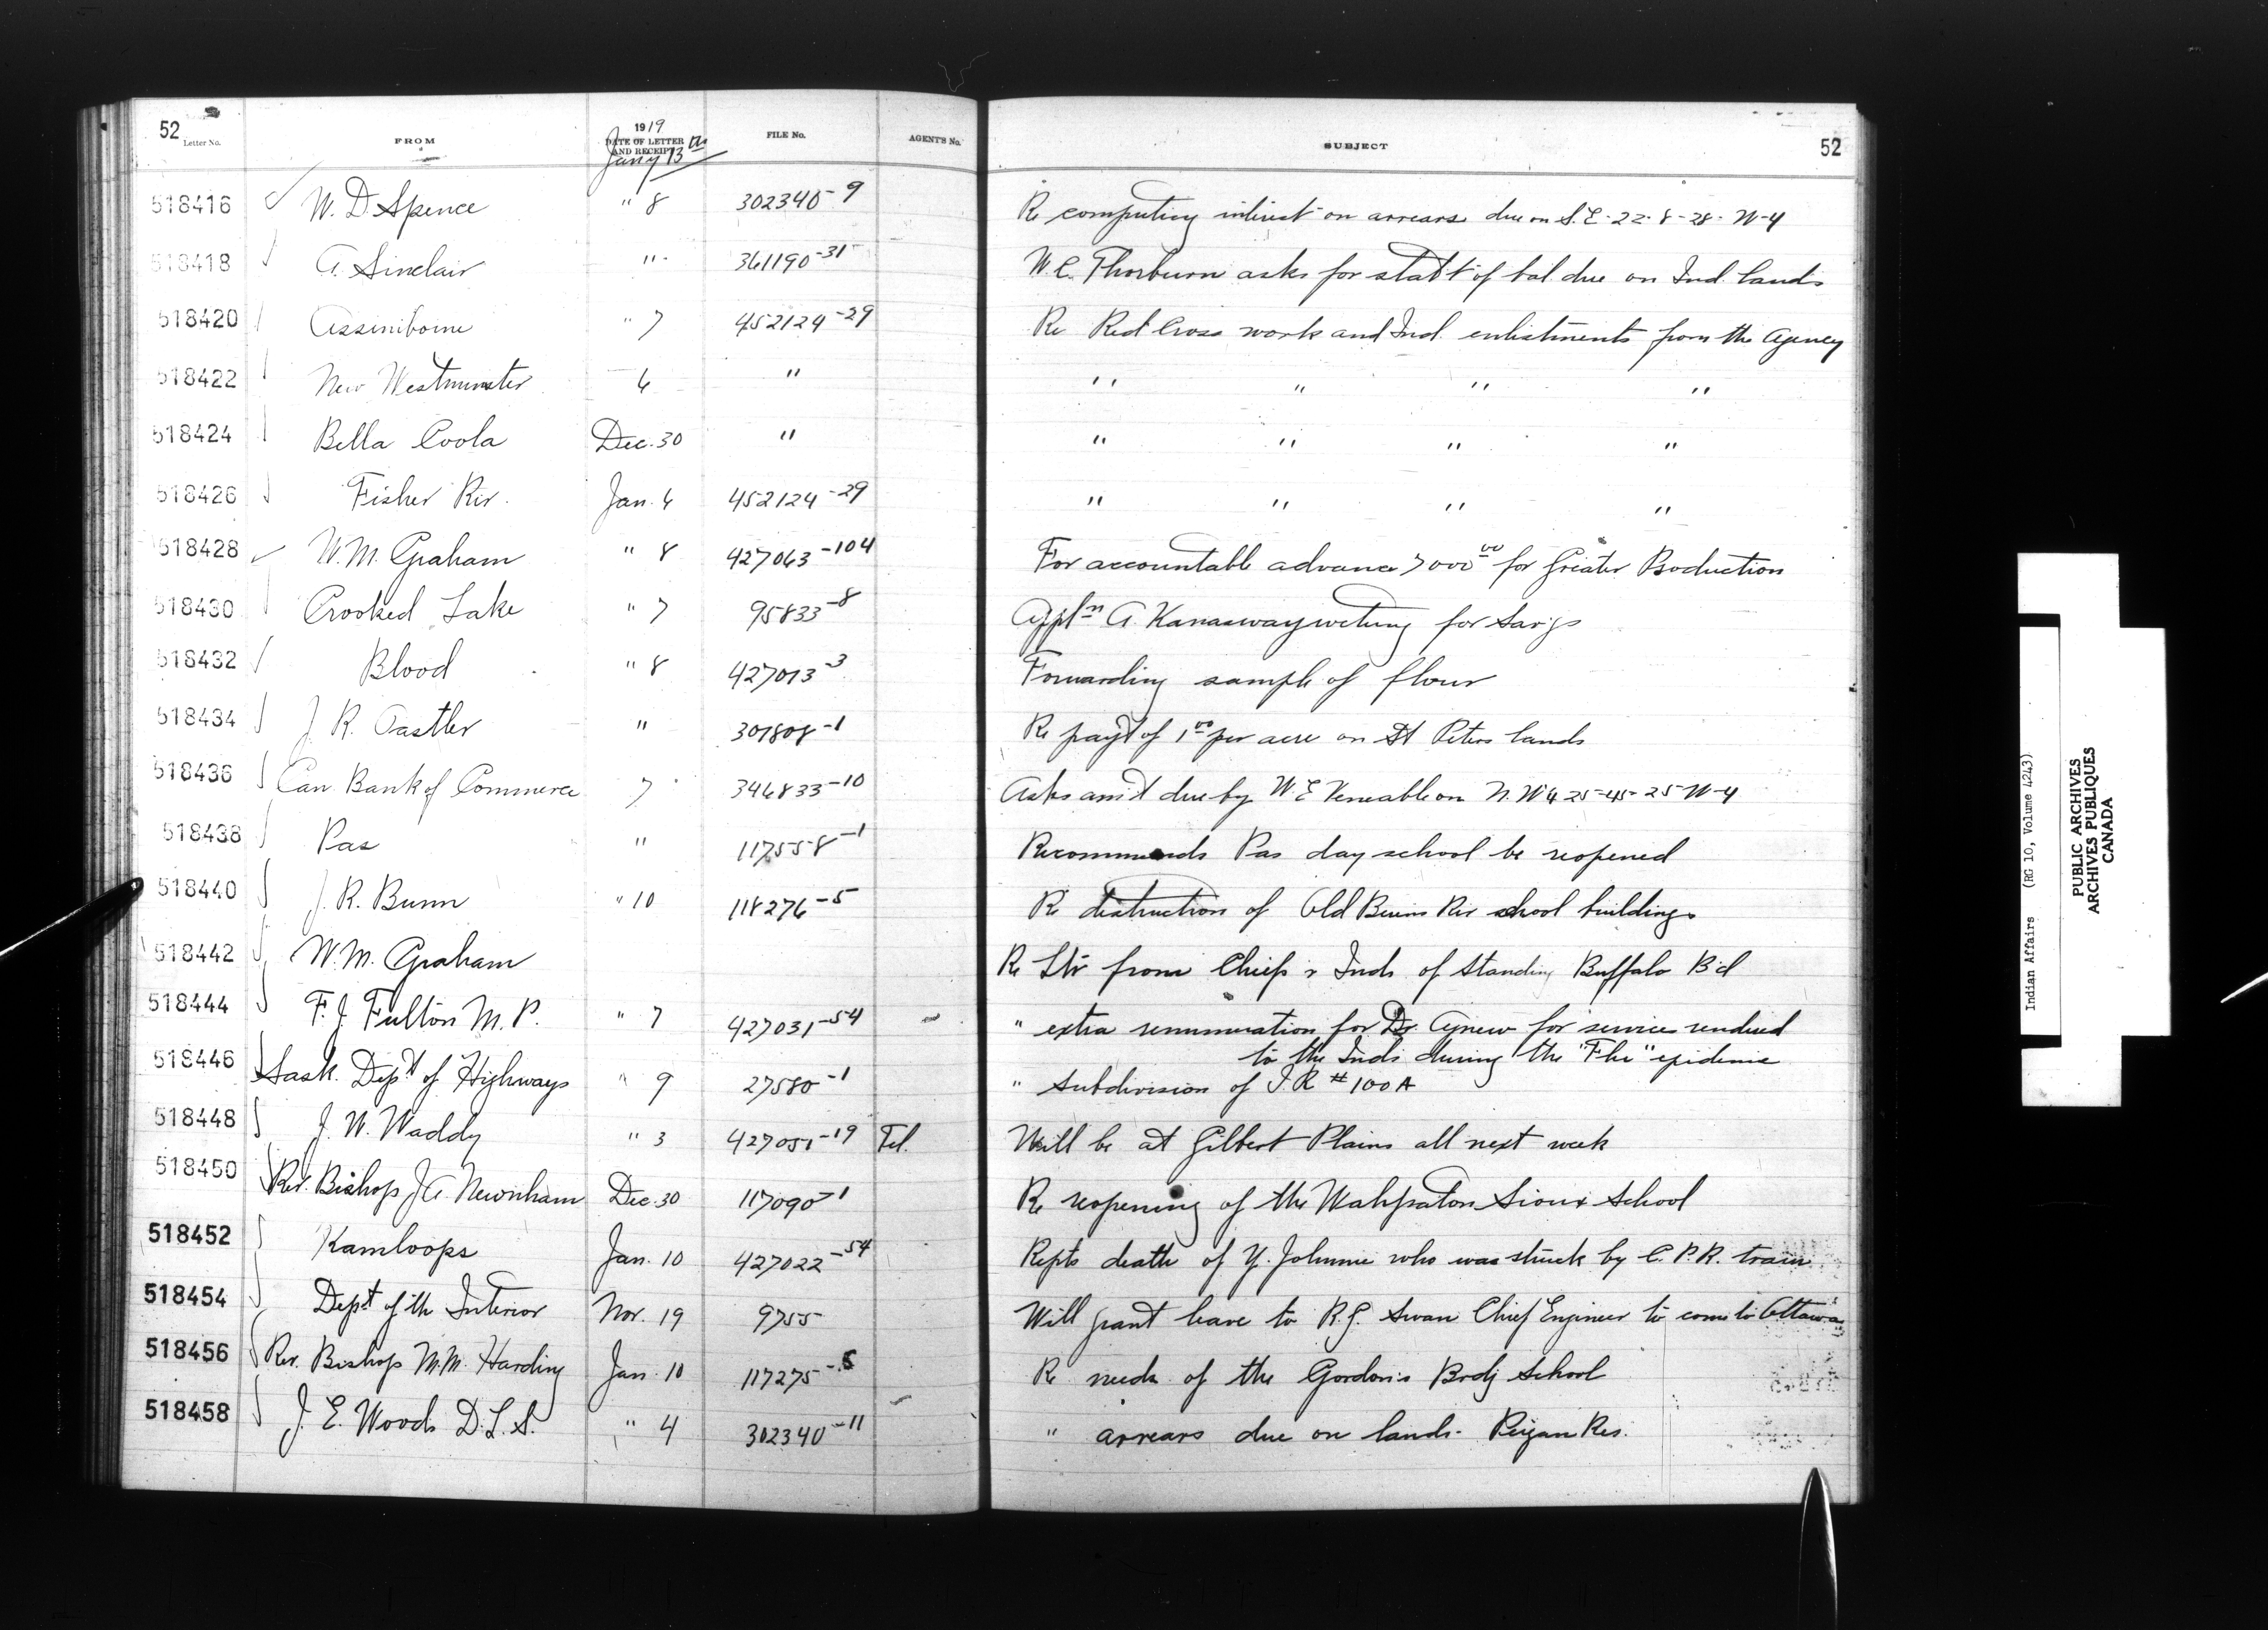 52 Letter No. FROM 1919 DATE OF LETTER AND RECEIPT Jany 13th FILE No. AGENT'S No. SUBJECT 52
518416 W. D. Spence " 8 302340-9 Re computing interest on arrears due on S.E-22-8-28-W-4
518418 A. Sinclair " 361190-31 W.C. Thorburn asks for stat't of bal due on Ind. lands
518420 Assiniboine " 7 452124-29 Re Red Cross work and Ind. enlistments from the Agency
518422 New Westminster 6 " " " " "
518424 Bella Coola Dec. 30 " " " " "
518426 Fisher Riv. Jan. 6 452124-29 " " " "
518428 W. M. Graham " 8 427063-104 For accountable advance 7000 00 for Greater Production
518430 Crooked Lake " 7 95833-8 Appln A. for Sav'gs
518432 Blood " 8 427013-3 Forwarding sample of flour
518434 J. R. Oastler " 301808-1 Re pay't of 1 00 per acre on St Peters lands
518436 Can. Bank of Commerce 7 346833-10 Asks am't due by W. E. Veneable on N.W 4 25-45-25-W-4
518438 Pas " 117558-1 Recommends Pas day school be reopened
518440 J. R. Bunn " 10 118276-5 Re destruction of Old Bruins Riv school buildings
518442 W. M. Graham Re Ltr from Chiefs & Inds of Standing Buffalo B'd
518444 F. J. Fulton M. P. " 7 427031-54 " extra renumeration for Dr. Agnew for service rendered
to the Inds during the "Flu" epidemic
518446 Sask. Dep't of Highways " 9 27580-1 " subdivision of I. R #100A
518448 J. W. Waddy " 3 427051-19 Tel. Will be at Gilbert Plains all next week
518450 Rev. Bishop J A. Newnham Dec. 30 117090-1 Re reopening of the Wahpaton Sioux School
518452 Kamloops Jan. 10 427022-54 Repts death of Y. Johnnie who was struck by C. P. R. train
518454 Dep't of th Interior Nov. 19 9755 Will grant leave to R. G. Swan Chief Engineer to come to Ottawa
518456 Rev. Bishop M. M. Harding Jan. 10 117275-5 Re needs of the Gordon's Brdg School
518458 J. E. Woods D. L. S. " 4 302340-11 " arrears due on lands - Peigan Res.
Indian Affairs (RG 10, Volume 4243)
PUBLIC ARCHIVES
ARCHIVES PUBLIQUES
CANADA